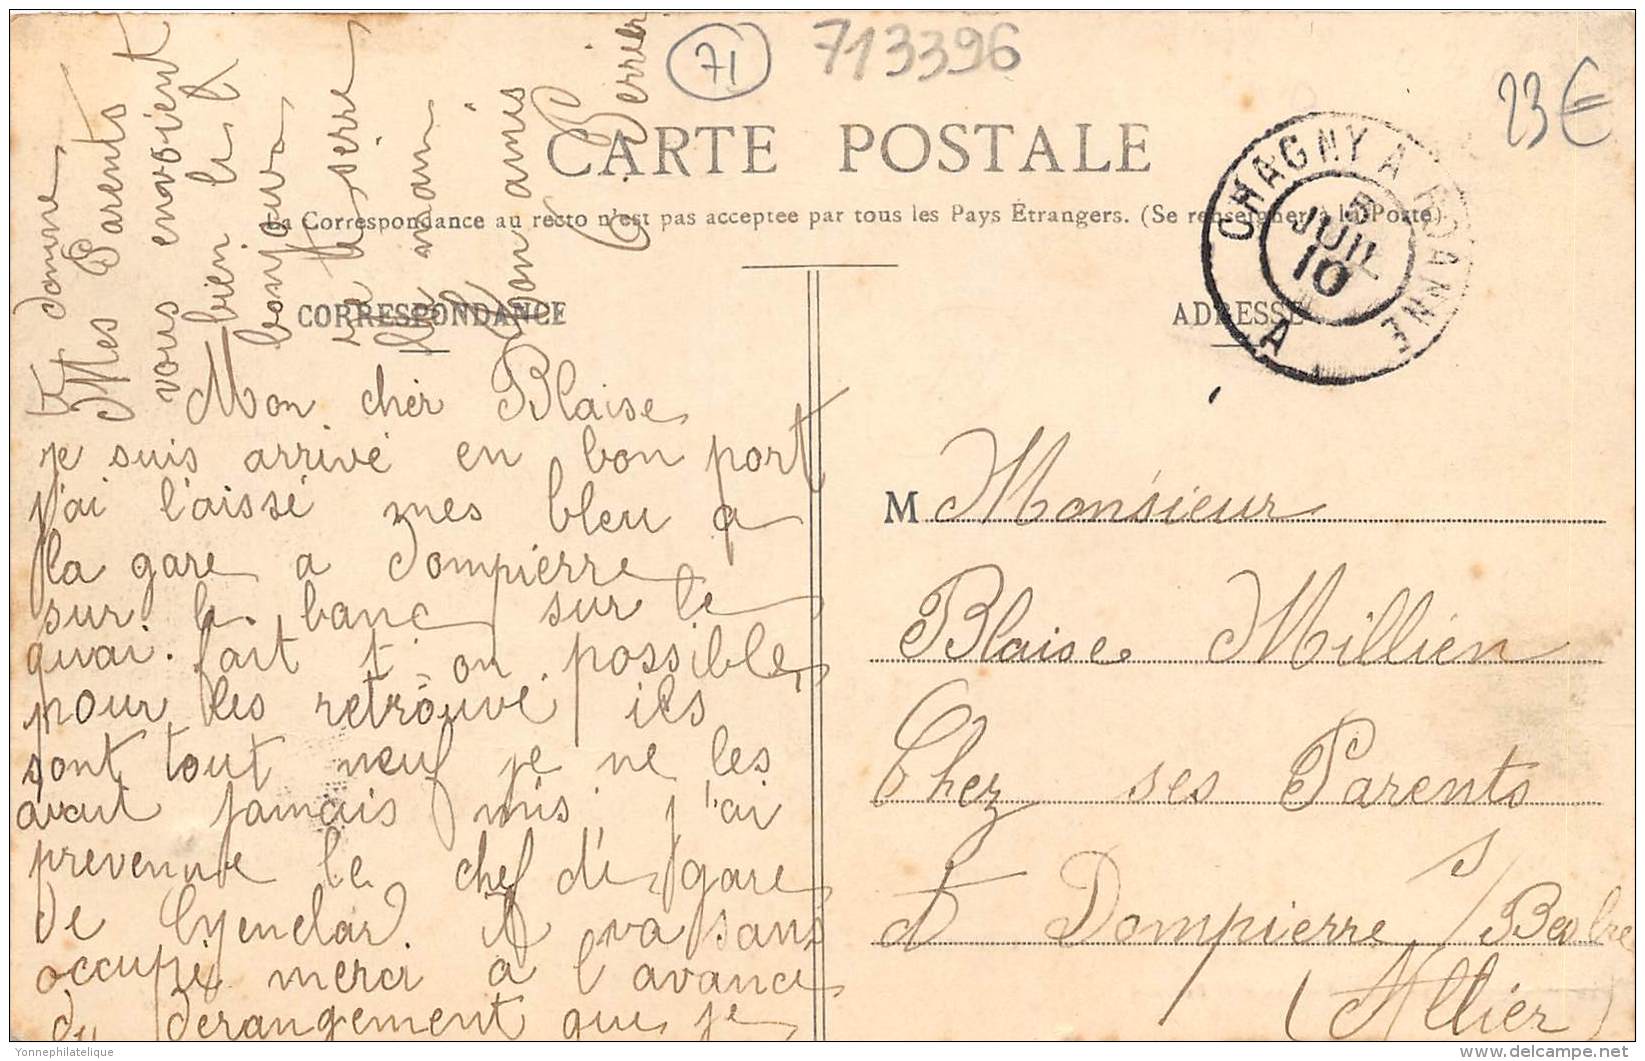 71
713396
23€
CARTE POSTALE
La Correspondance au recto n'est pas acceptee par tous les Pays Étrangers. (Se renseigner à la Poste)
CORRESPONDANCE
ADRESSE
CHAGNY A ROANNE
JUIL
10
A
Mon cher Blaise
je suis arrivé en bon port
j'ai l'aissé mes bleu a
la gare a Dompierre
sur le banc sur le
quai. fait t'on possible
pour les retrouvé ils
sont tout neuf je ne les
avait jamais mis j'ai
prevenue le chef de gare
De il va sans
occupé merci a l'avance
du derangement que je
te donne
Mes Parents
vous envoient
bien le
bonjour
la
main
ton amis
M Monsieur
Blaise Millien
Chez ses Parents
à Dompierre s/ Besbre
(Allier)
Yonnephilatelique
delcampe.net